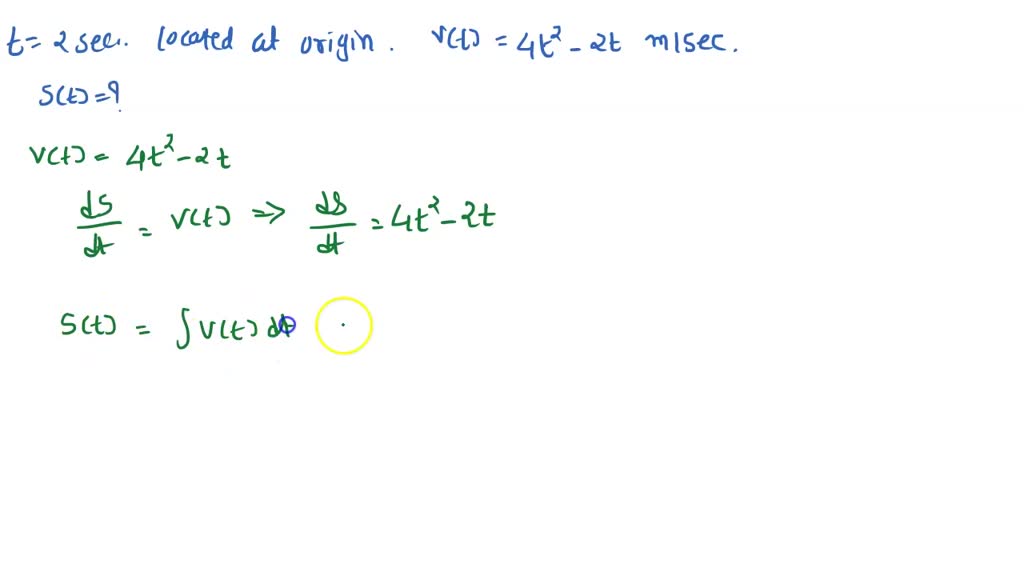 t = 2 sec. located at origin. v(t) = 4t² - 2t m/sec.
s(t) = ?
v(t) = 4t² - 2t
ds/dt = v(t) ⇒ ds/dt = 4t² - 2t
s(t) = ∫ v(t) dt